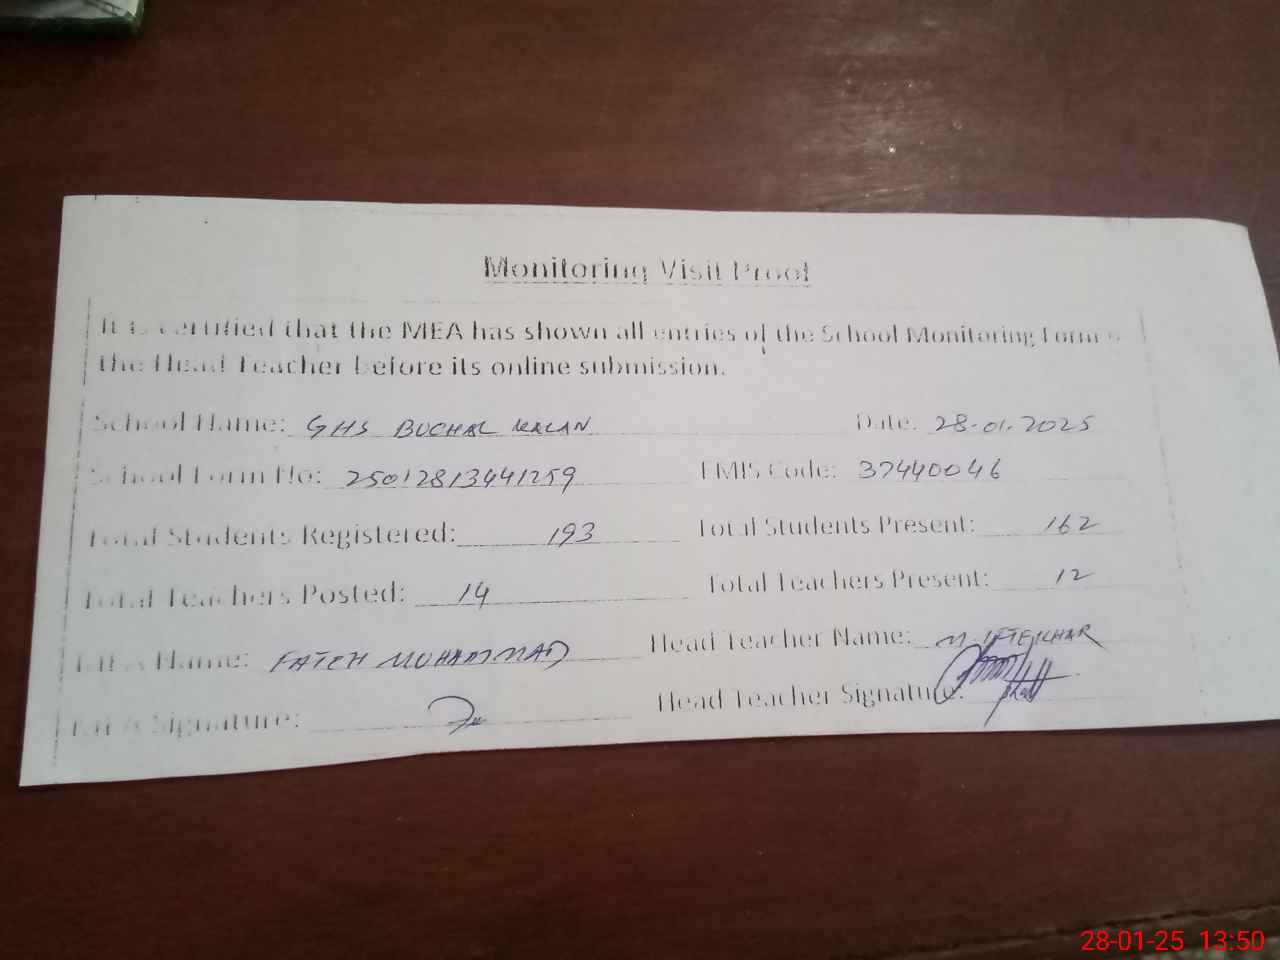 Monitoring Visit Proof
It is certified that the MEA has shown all entries of the School Monitoring Form to
the Head Teacher before its online submission.
School Name: GHS BUCHAL KALAN Date: 28-01-2025
School Form No: 25012813441259 EMIS Code: 37440046
Total Students Registered: 193 Total Students Present: 162
Total Teachers Posted: 14 Total Teachers Present: 12
MEA Name: FATEH MUHAMMAD Head Teacher Name: M. IFTEKHAR
MEA Signature: Head Teacher Signature:
28-01-25 13:50